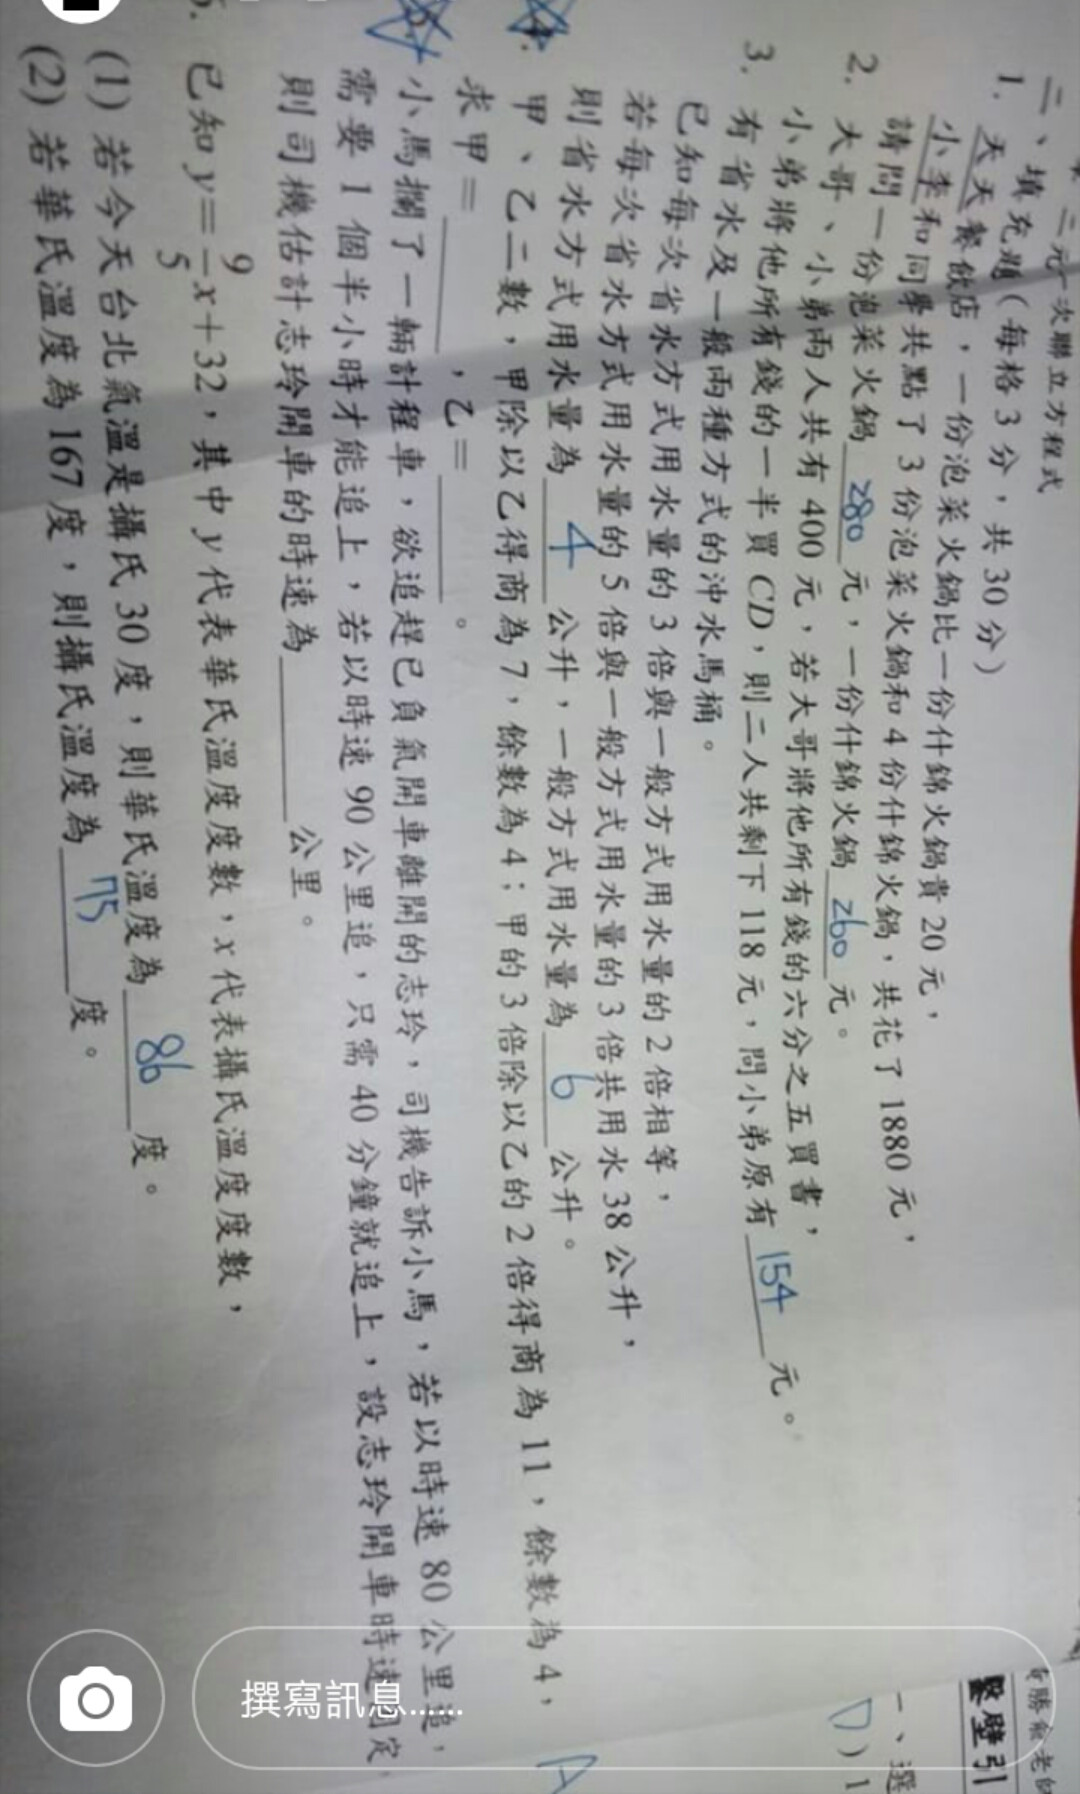 二元一次聯立方程式
二、填充題（每格 3 分，共 30 分）
1. 天天餐飲店，一份泡菜火鍋比一份什錦火鍋貴 20 元，
小李和同學共點了 3 份泡菜火鍋和 4 份什錦火鍋，共花了 1880 元，
請問一份泡菜火鍋 280 元，一份什錦火鍋 260 元。
2. 大哥、小弟兩人共有 400 元，若大哥將他所有錢的六分之五買書，
小弟將他所有錢的一半買 CD，則二人共剩下 118 元，問小弟原有 154 元。
3. 有省水及一般兩種方式的沖水馬桶。
已知每次省水方式用水量的 3 倍與一般方式用水量的 2 倍相等，
若每次省水方式用水量的 5 倍與一般方式用水量的 3 倍共用水 38 公升，
則省水方式用水量為 4 公升，一般方式用水量為 6 公升。
4. 甲、乙二數，甲除以乙得商為 7，餘數為 4；甲的 3 倍除以乙的 2 倍得商為 11，餘數為 4，
求甲＝ ，乙＝ 。
小馬攔了一輛計程車，欲追趕已負氣開車離開的志玲，司機告訴小馬，若以時速 80 公里追，
需要 1 個半小時才能追上，若以時速 90 公里追，只需 40 分鐘就追上，設志玲開車時速固定，
則司機估計志玲開車的時速為 公里。
已知 y＝9/5x＋32，其中 y 代表華氏溫度度數，x 代表攝氏溫度度數，
(1) 若今天台北氣溫是攝氏 30 度，則華氏溫度為 86 度。
(2) 若華氏溫度為 167 度，則攝氏溫度為 75 度。
老師
一、選
D ) 1
A
撰寫訊息......